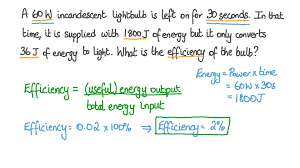 A 60W incandescent lightbulb is left on for 30 seconds. In that
time, it is supplied with 1800J of energy but it only converts
36J of energy to light. What is the efficiency of the bulb?
Energy = Power × time
= 60W × 30s
= 1800J
Efficiency = (useful) energy output
total energy input
Efficiency = 0.02 × 100% ⇒ Efficiency = 2%